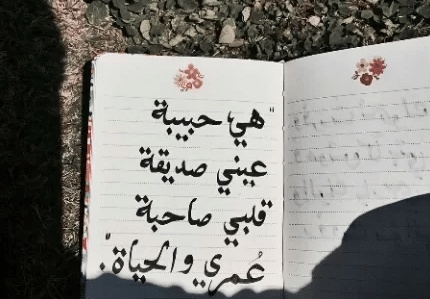 "هي حبيبة
عيني صديقة
قلبي صاحبة
عُمري والحياة".